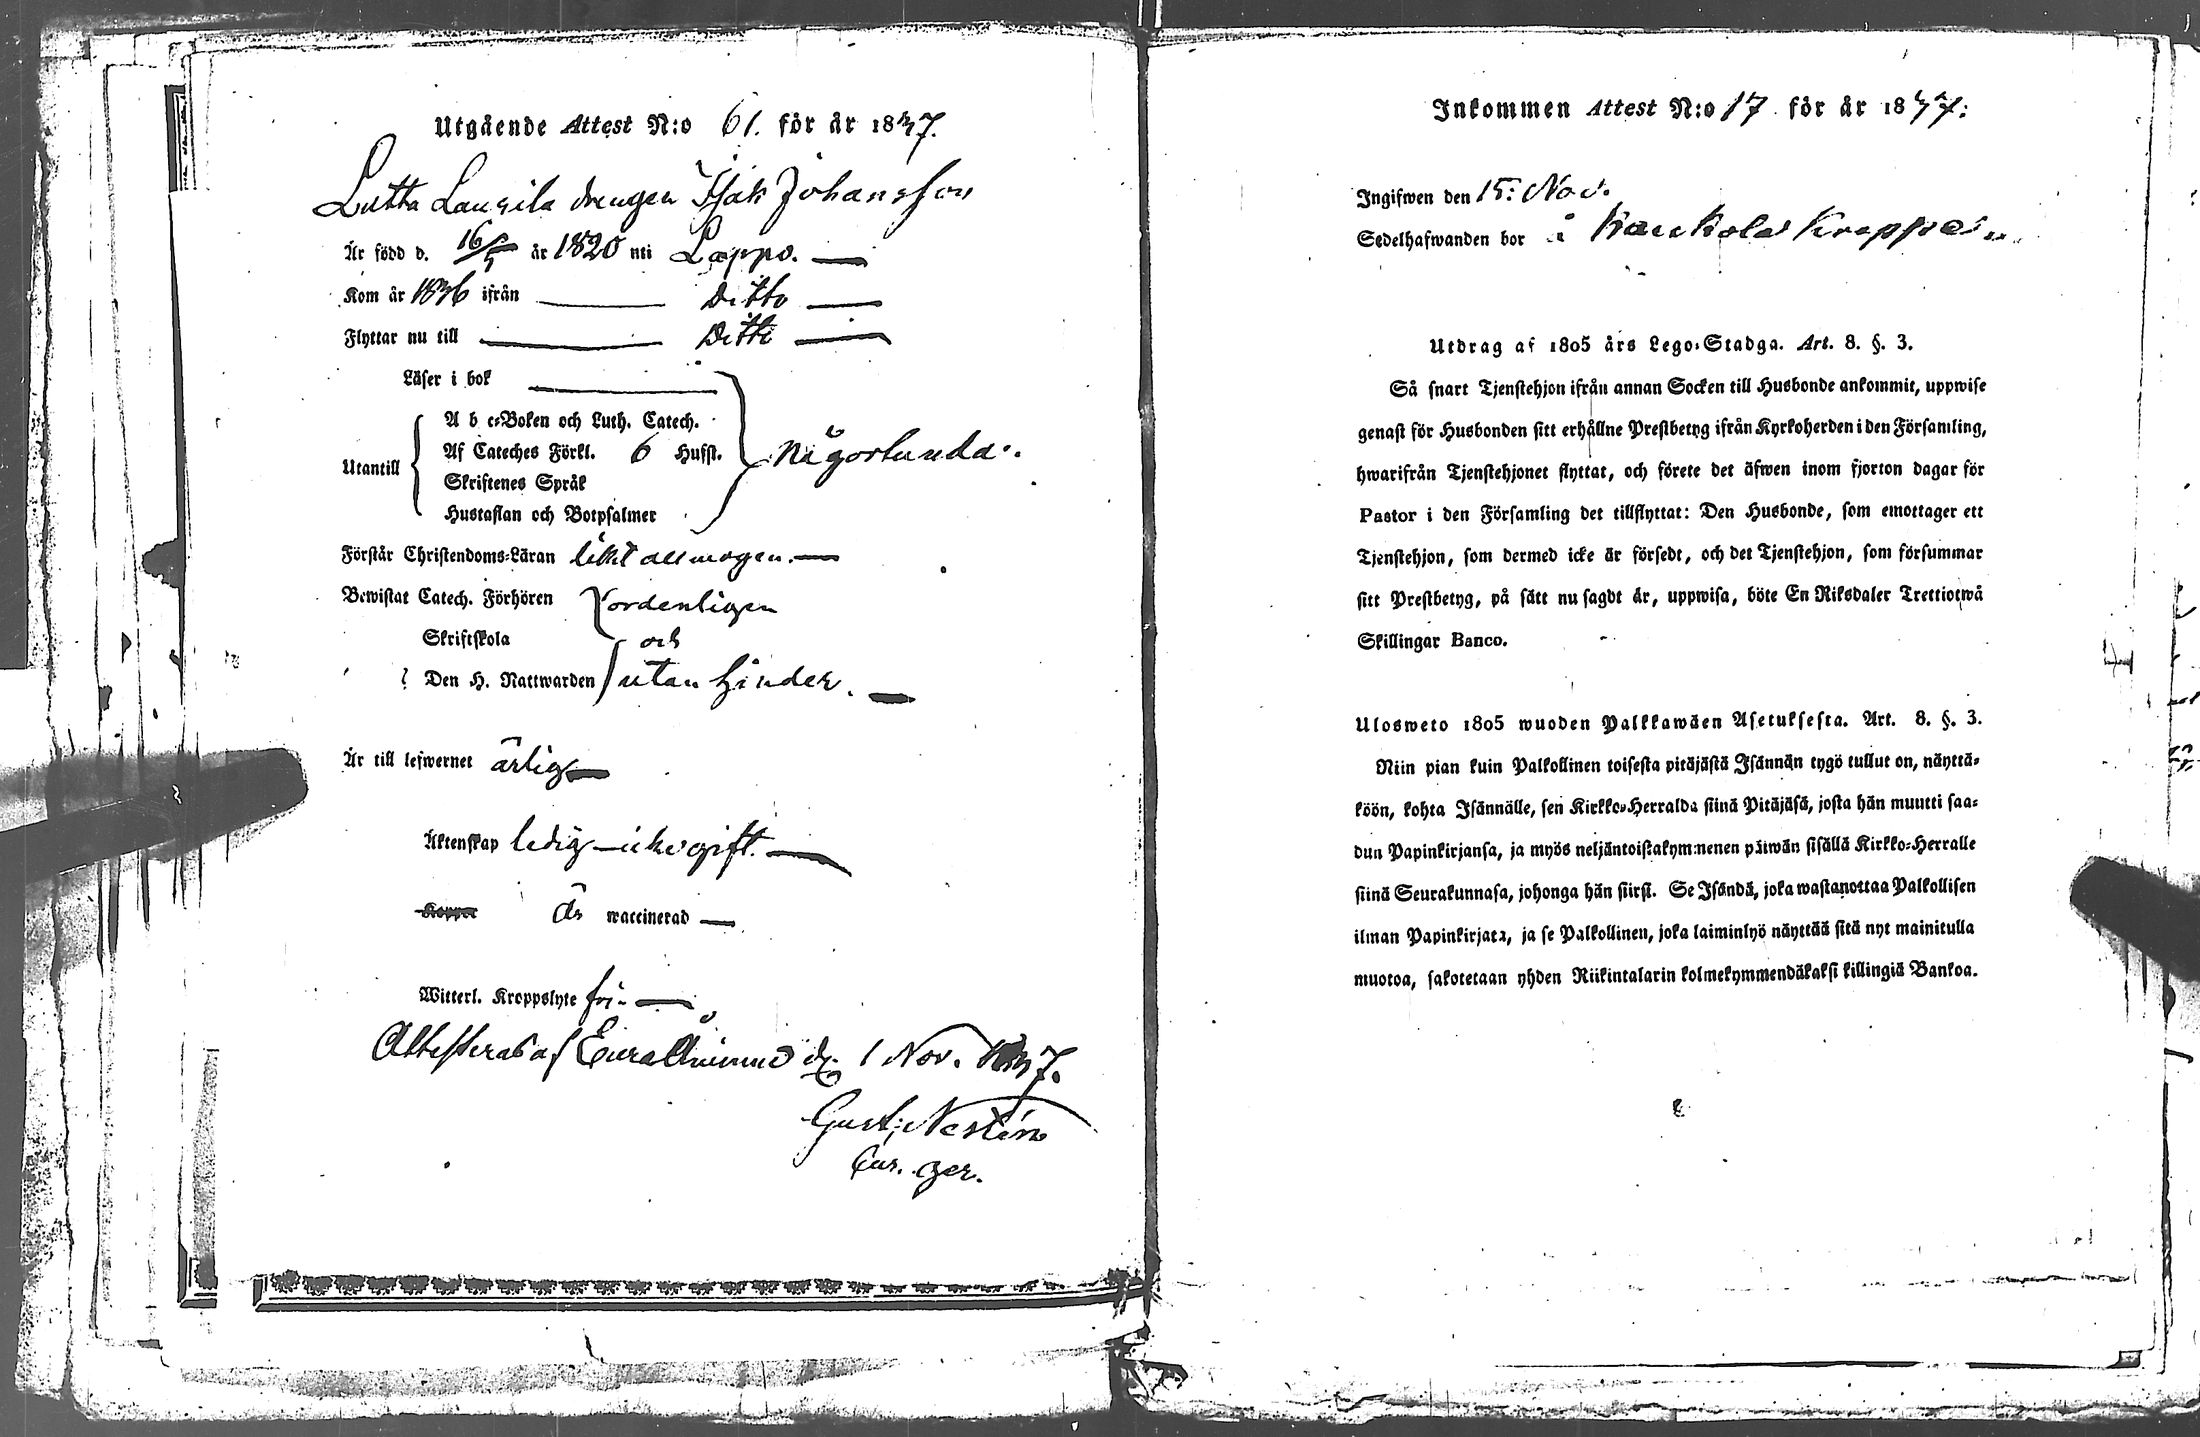 Utgående Attest N:o 61. för år 1837.
Lutta Laurila drengen Isak Johansson
Är född d. 16/5 år 1820 uti Lappo.
Kom år 1836 ifrån Ditto
Flyttar nu till Ditto
Läser i bok
A b c-Boken och Luth. Catech.
Utantill Af Cateches Förkl. 6 Hufst. någorlunda.
Skriftenes Språk
Hustaflan och Botpsalmer
Förstår Christendoms-Läran likt allmogen.
Bewistat Catech. Förhören ordenligen
Skriftskola och
Den H. Nattwarden utan hinder.
Är till lefwernet ärlig
Äktenskap ledig icke gift.
Koppor är waccinerad
Witterl. Kroppslyte fri
Attesteras af Eura Åminne d. 1 Nov. 1837.
Gust. Nestén
Inkommen Attest N:o 17 för år 1837:
Ingifwen den 15: Nov.
Sedelhafwanden bor i Kaukola
Utdrag af 1805 års Lego-Stadga. Art. 8. §. 3.
Så snart Tjenstehjon ifrån annan Socken till Husbonde ankommit, uppwise
genast för Husbonden sitt erhållne Prestbetyg ifrån Kyrkoherden i den Församling,
hwarifrån Tjenstehjonet flyttat, och förete det äfwen inom fjorton dagar för
Pastor i den Församling det tillflyttat: Den Husbonde, som emottager ett
Tjenstehjon, som dermed icke är försedt, och det Tjenstehjon, som försummar
sitt Prestbetyg, på sätt nu sagdt är, uppwisa, böte En Riksdaler Trettiotwå
Skillingar Banco.
Ulosweto 1805 wuoden Palkkawäen Asetuksesta. Art. 8. §. 3.
Niin pian kuin Palkollinen toisesta pitäjästä Isännän tygö tullut on, näyttä-
köön, kohta Isännälle, sen Kirkko-Herralda siinä Pitäjäsä, josta hän muutti saa-
dun Papinkirjansa, ja myös neljäntoistakymmenen päiwän sisällä Kirkko-Herralle
siinä Seurakunnasa, johonga hän siirsi. Se Isändä, joka wastanottaa Palkollisen
ilman Papinkirjata, ja se Palkollinen, joka laiminlyö näyttää sitä nyt mainitulla
muotoa, sakotetaan yhden Riikintalarin kolmekymmendäkaksi killingiä Bankoa.